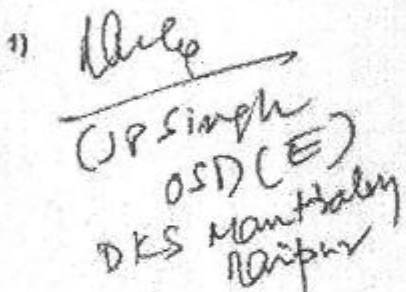 1)
(JP Singh
OSD (E)
DKS Mantralay
Raipur